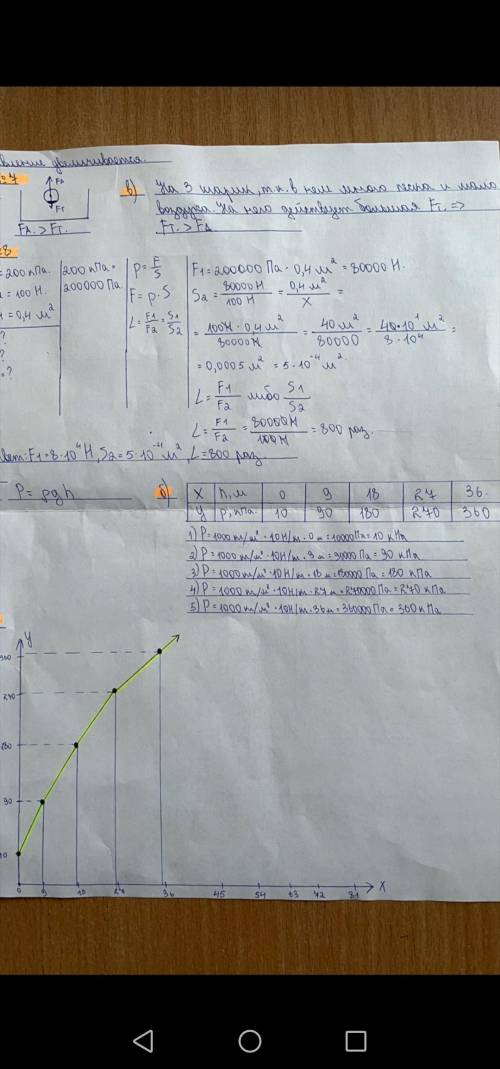 увеличивается.
FA
FT
FA > FT.
в) На 3 шарик, т.к. в нем много песка и мало
воздуха. На него действует большая FT. =>
FT. > FA
= 200 кПа.
= 100 Н.
= 0,4 м²
?
?
= ?
200 кПа =
200000 Па
P = F/S
F = p · S
L = F1/F2 = S1/S2
F1 = 200000 Па · 0,4 м² = 80000 Н.
S2 = 80000 Н/100 Н = 0,4 м²/X =
= 100Н · 0,4 м²/80000 Н = 40 м²/80000 = 40·10¹ м²/8·10⁴ =
= 0,0005 м² = 5·10⁻⁴ м².
L = F1/F2 либо S1/S2
L = F1/F2 = 80000 Н/100 Н = 800 раз.
F1 = 8·10⁴ Н, S2 = 5·10⁻⁴ м², L = 800 раз.
P = ρgh
б) X h, м 0 9 18 27 36.
y p, кПа. 10 90 180 270 360
1) P = 1000 т/м³ · 10Н/т · 0 м = 10000Па = 10 кПа
2) P = 1000 т/м³ · 10Н/т · 9 м = 90000 Па = 90 кПа
3) P = 1000 т/м³ · 10Н/т · 18 м = 180000Па = 180 кПа
4) P = 1000 т/м³ · 10Н/т · 27 м = 270000Па = 270 кПа
5) P = 1000 т/м³ · 10Н/т · 36 м = 360000Па = 360 кПа
y
360
270
180
90
10
0 9 18 27 36 45 54 63 72 81 X